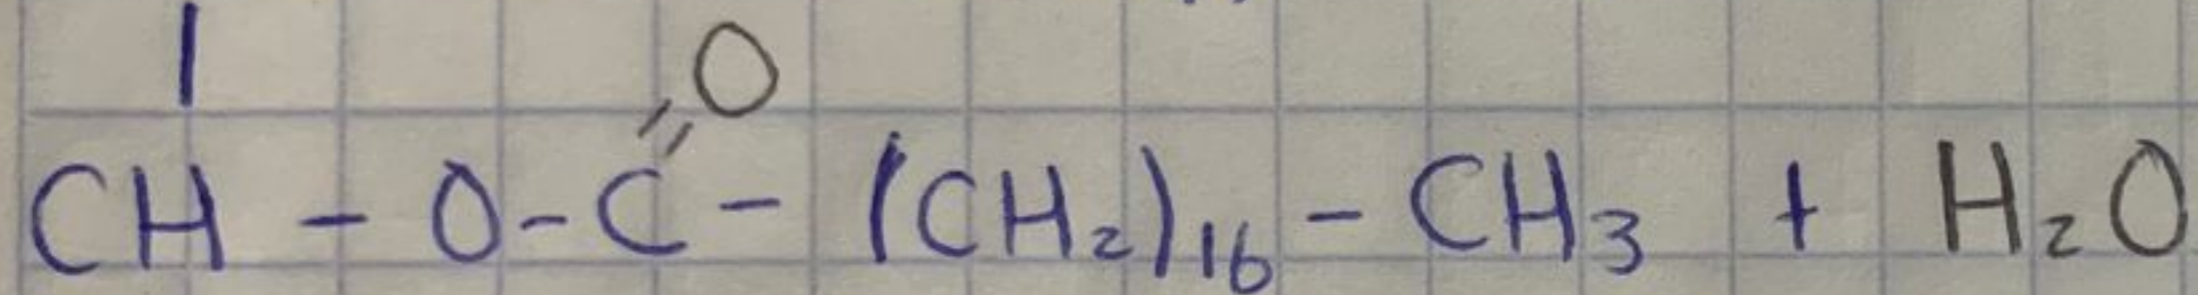 O
CH - O - C - (CH₂)₁₆ - CH₃ + H₂O